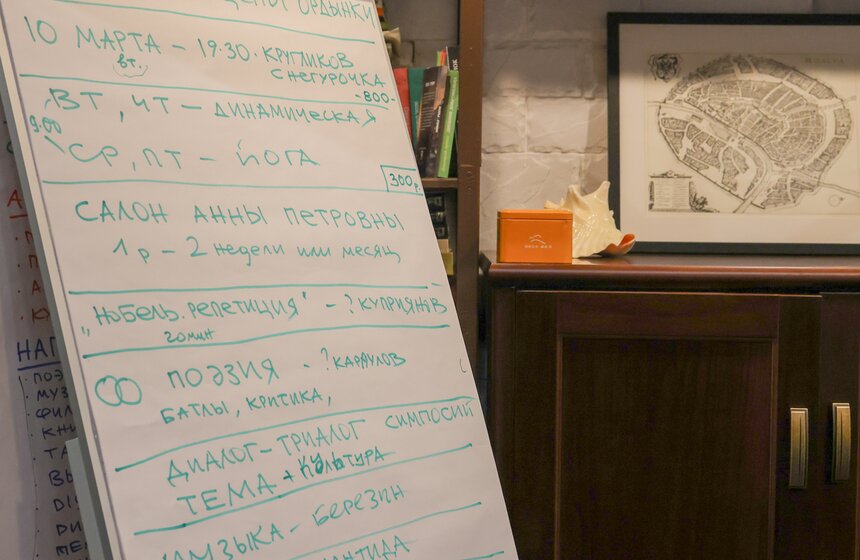 ОРДЫНКИ
10 МАРТА – 19:30 · КРУГЛИКОВ
ВТ.. СНЕГУРОЧКА
-800-
ВТ, ЧТ – ДИНАМИЧЕСКАЯ
9:00
СР, ПТ – ЙОГА
300р.
САЛОН АННЫ ПЕТРОВНЫ
1 р – 2 недели или месяц
„НОБЕЛЬ. РЕПЕТИЦИЯ" – ? КУПРИЯНОВ
20 мин
ПОЭЗИЯ – ? КАРАУЛОВ
БАТЛЫ, КРИТИКА,
ДИАЛОГ–ТРИАЛОГ СИМПОСИЙ
ТЕМА + КУЛЬТУРА
МУЗЫКА – БЕРЕЗИН
НАП
ПОЭ
МУЗ
ФИЛ
КНИ
ТА
ВЫ